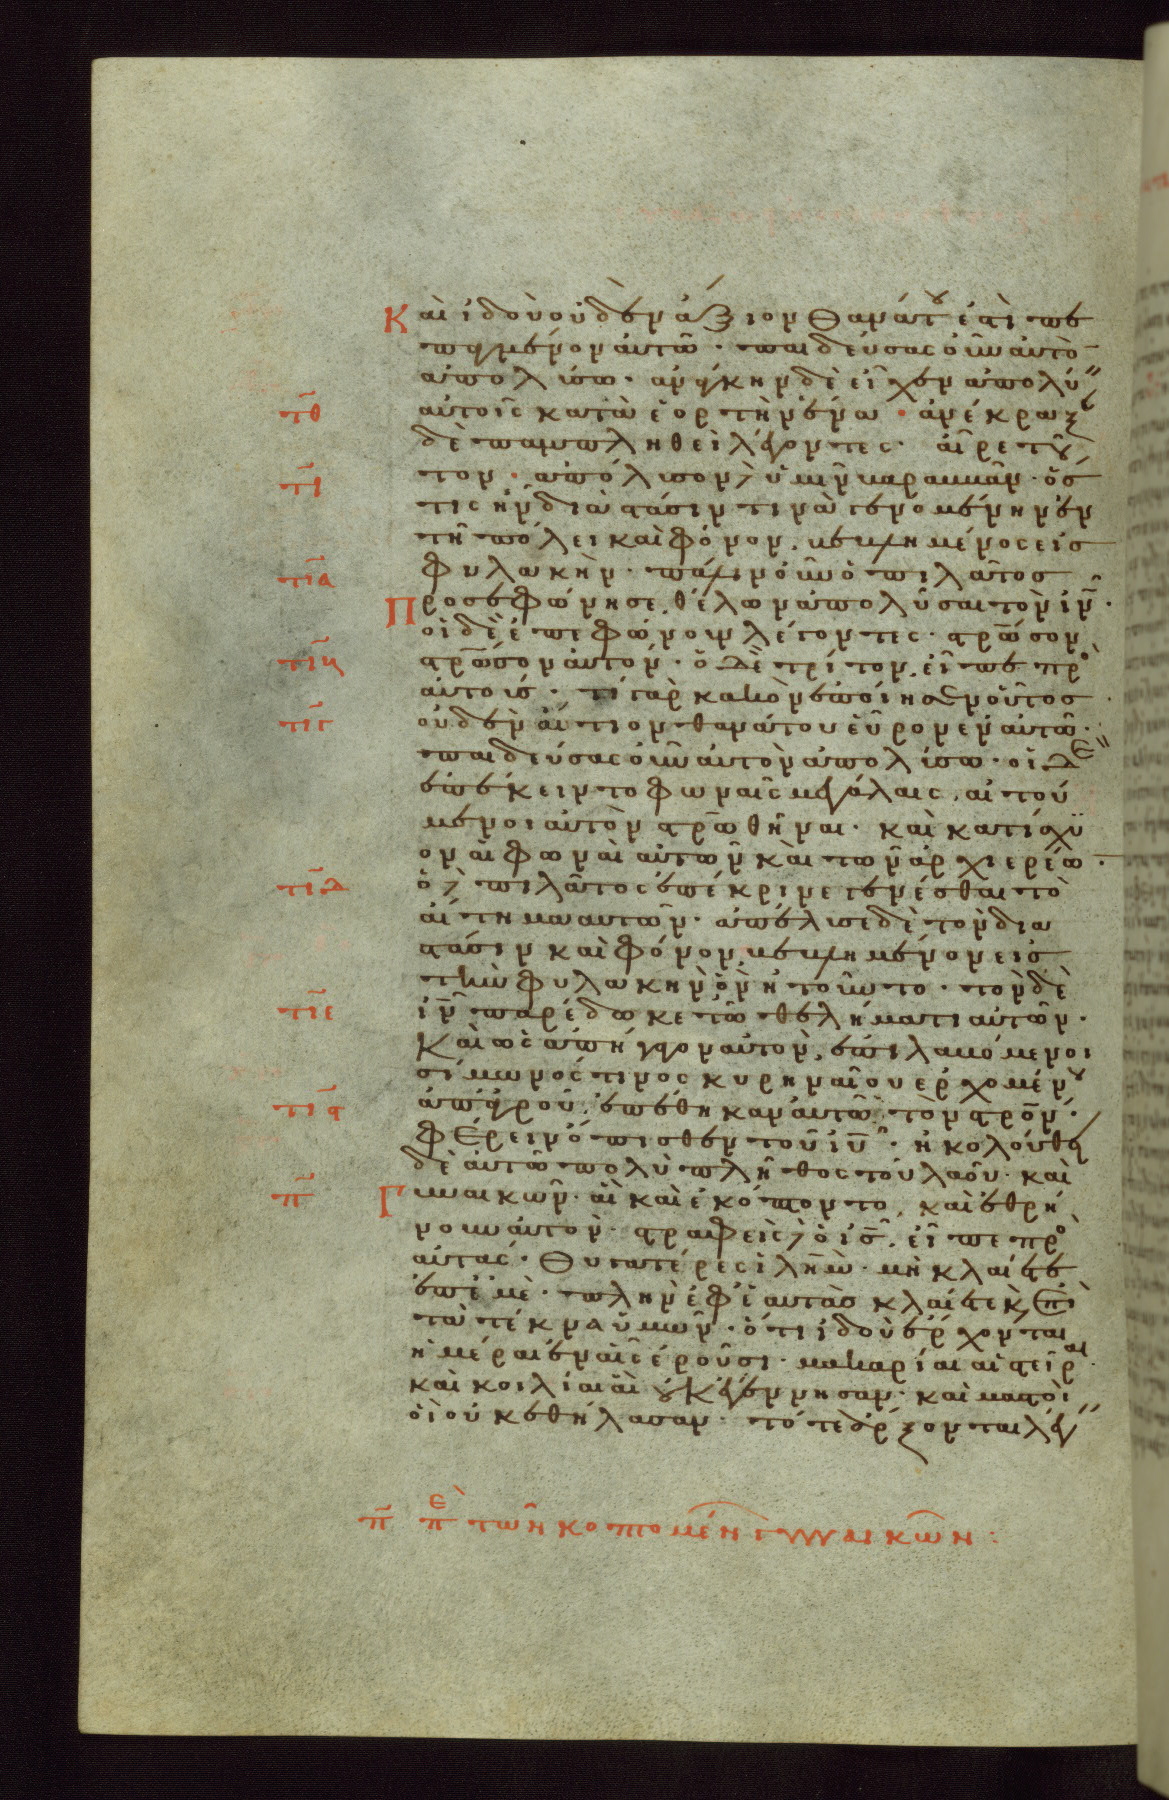 Καὶ ἰδοὺ οὐδὲν ἄξιον θανάτου ἐστὶ πε
πραγμένον αὐτῶ · παιδεύσας οὖν αὐτὸ̄
ἀπολύσω · ἀνάγκην δὲ εἶχεν ἀπολύ"
τιθ αὐτοῖς κατὰ ἑορτὴν ἕνα · ἀνέκραξ
δὲ παμπληθεὶ λέγοντες · αἶρε τοῦ
τι τον · ἀπόλυσον δὲ ἡμῖν βαραββᾶν · ὅσ
τις ἦν διὰ στάσιν τινὰ γενομένην ἐν
τῆ πόλει καὶ φόνον, βεβλημένος εἰς
τια φυλακήν · πάλιν οὖν ὁ πιλᾶτος
Προσεφώνησε, θέλων ἀπολῦσαι τὸν ιν̄ ·
οἱ δὲ ἐπεφώνουν λέγοντες · στρω̄σον
τιβ στρω̄σον αὐτόν · ὁ δὲ τρίτον, εἶπε πρὸ
αὐτοίς · τί γὰρ κακὸν ἐποίησεν οὗτος
τιγ οὐδὲν αἴτιον θανάτου εὗρον ἐν αὐτῶ ·
παιδεύσας οὖν αὐτὸν ἀπολύσω · οἱ δὲ"
ἐπέκειντο φωναῖς μεγάλαις, αἰτού
μενοι αὐτὸν στρω̄θῆναι · καὶ κατίσχυ
ον αἱ φωναὶ αὐτῶν καὶ τῶν ἀρχιερέω ·
τιδ ὁ δὲ πιλᾶτος ἐπέκρινε γενέσθαι τὸ
αἴτημα αὐτῶν · ἀπέλυσε δὲ τὸν δια
στάσιν καὶ φόνον βεβλημένον εἰς
τὴν φυλακὴν ὃν ἠτοῦντο · τὸν δὲ
τιε ιν̄ παρέδωκε τῶ θελήματι αὐτῶν ·
Καὶ ὡς ἀπήγαγον αὐτὸν, ἐπιλαβόμενοι
σίμωνός τινος κυρηναίου ερχομένου
τις ἀπ' ἀγροῦ, ἐπέθηκαν αὐτῶ τὸν στρο̄ν ·
φέρειν ὄπισθεν τοῦ ιῡ · ἠκολούθει
δὲ αὐτῶ πολὺ πλῆθος τοῦ λαοῦ · καὶ
π Γυναικῶν · αἳ καὶ ἐκόπτοντο, καὶ ἐθρή
νουν αὐτόν · στραφεὶς δὲ ὁ ις̄, εἶπε πρὸ
αὐτάς · Θυγατέρες ιλη̄μ · μὴ κλαίετε
ἐπ' ἐμὲ · πλὴν ἐφ' ἑαυτὰς κλαίετε κ, ἐπὶ
τὰ τέκνα ὑμῶν · ὅτι ἰδοὺ ἔρχονται
ἡμέραι ἐν αἷς ἐροῦσι · μακάριαι αἱ στεῖραι ·
καὶ κοιλίαι αἳ οὐκ ἐγέννησαν · καὶ μαστοὶ
οἳ οὐκ ἐθήλασαν · τότε ἄρξονται λέγ"
π πε τῶν κοπτομένων γυναικῶν :